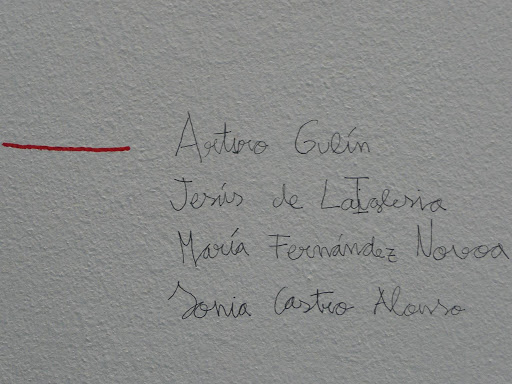 Arturo Gulín
Jesús de LaIglesia
María Fernández Novoa
Sonia Castro Alonso